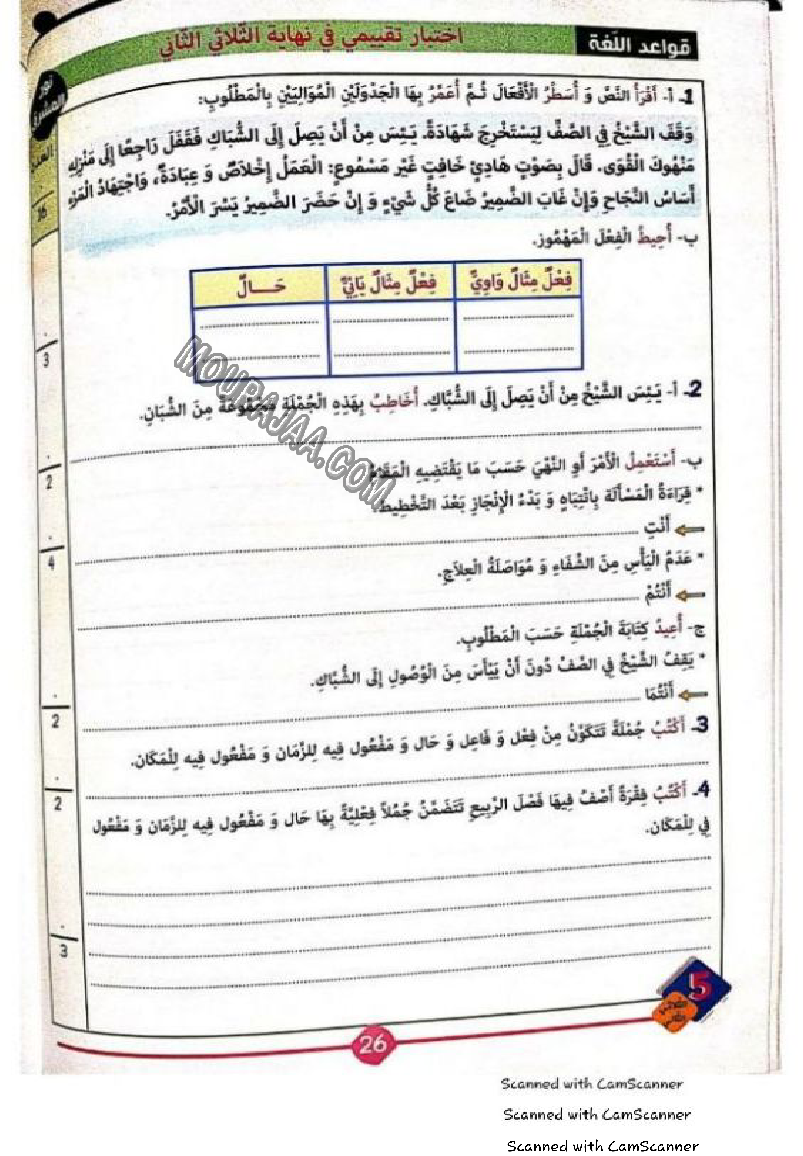 قواعد اللّغة
اختبار تقييمي في نهاية الثّلاثي الثّاني
1ـ أ- أَقْرَأُ النَّصَّ وَ أُسَطِّرُ الْأَفْعَالَ ثُمَّ أُعَمِّرُ بِهَا الْجَدْوَلَيْنِ الْمُوَالِيَيْنِ بِالْمَطْلُوبِ:
وَقَفَ الشَّيْخُ فِي الصَّفِّ لِيَسْتَخْرِجَ شَهَادَةً. يَئِسَ مِنْ أَنْ يَصِلَ إِلَى الشُّبَاكِ فَقَفَلَ رَاجِعًا إِلَى مَنْزِلِهِ
مَنْهُوكَ الْقُوَى. قَالَ بِصَوْتٍ هَادِئٍ خَافِتٍ غَيْرِ مَسْمُوعٍ: الْعَمَلُ إِخْلَاصٌ وَ عِبَادَةٌ، وَاجْتِهَادُ الْمَرْءِ
أَسَاسُ النَّجَاحِ وَإِنْ غَابَ الضَّمِيرُ ضَاعَ كُلُّ شَيْءٍ وَ إِنْ حَضَرَ الضَّمِيرُ يَسَّرَ الْأَمْرُ.
ب- أُحِيطُ الْفِعْلَ الْمَهْمُوزَ.
فِعْلٌ مِثَالٌ وَاوِيٌّ
فِعْلٌ مِثَالٌ يَائِيٌّ
حَـــالٌ
3
2ـ أ- يَئِسَ الشَّيْخُ مِنْ أَنْ يَصِلَ إِلَى الشُّبَّاكِ. أُخَاطِبُ بِهَذِهِ الْجُمْلَةِ مَجْمُوعَةً مِنَ الشُّبَانِ.
2
ب- أَسْتَعْمِلُ الْأَمْرَ أَوِ النَّهْيَ حَسَبَ مَا يَقْتَضِيهِ الْمَقَامُ
* قِرَاءَةُ الْمَسْأَلَةِ بِانْتِبَاهٍ وَ بَدْءُ الْإِنْجَازِ بَعْدَ التَّخْطِيطِ.
أَنْتِ
4
* عَدَمُ الْيَأْسِ مِنَ الشِّفَاءِ وَ مُوَاصَلَةُ الْعِلَاجِ.
أَنْتُمْ
ج- أُعِيدُ كِتَابَةَ الْجُمْلَةِ حَسَبَ الْمَطْلُوبِ.
* يَقِفُ الشَّيْخُ فِي الصَّفِّ دُونَ أَنْ يَيْأَسَ مِنَ الْوُصُولِ إِلَى الشُّبَّاكِ.
أَنْتُمَا
2
3ـ أَكْتُبُ جُمْلَةً تَتَكَوَّنُ مِنْ فِعْلٍ وَ فَاعِلٍ وَ حَالٍ وَ مَفْعُولٍ فِيهِ لِلزَّمَانِ وَ مَفْعُولٍ فِيهِ لِلْمَكَانِ.
2
4ـ أَكْتُبُ فِقْرَةً أَصِفُ فِيهَا فَصْلَ الرَّبِيعِ تَتَضَمَّنُ جُمَلاً فِعْلِيَّةً بِهَا حَالٌ وَ مَفْعُول فِيهِ لِلزَّمَانِ وَ مَفْعُول
فِي لِلْمَكَانِ.
3
5
26
MOURAJAA.COM
Scanned with CamScanner
Scanned with CamScanner
Scanned with CamScanner